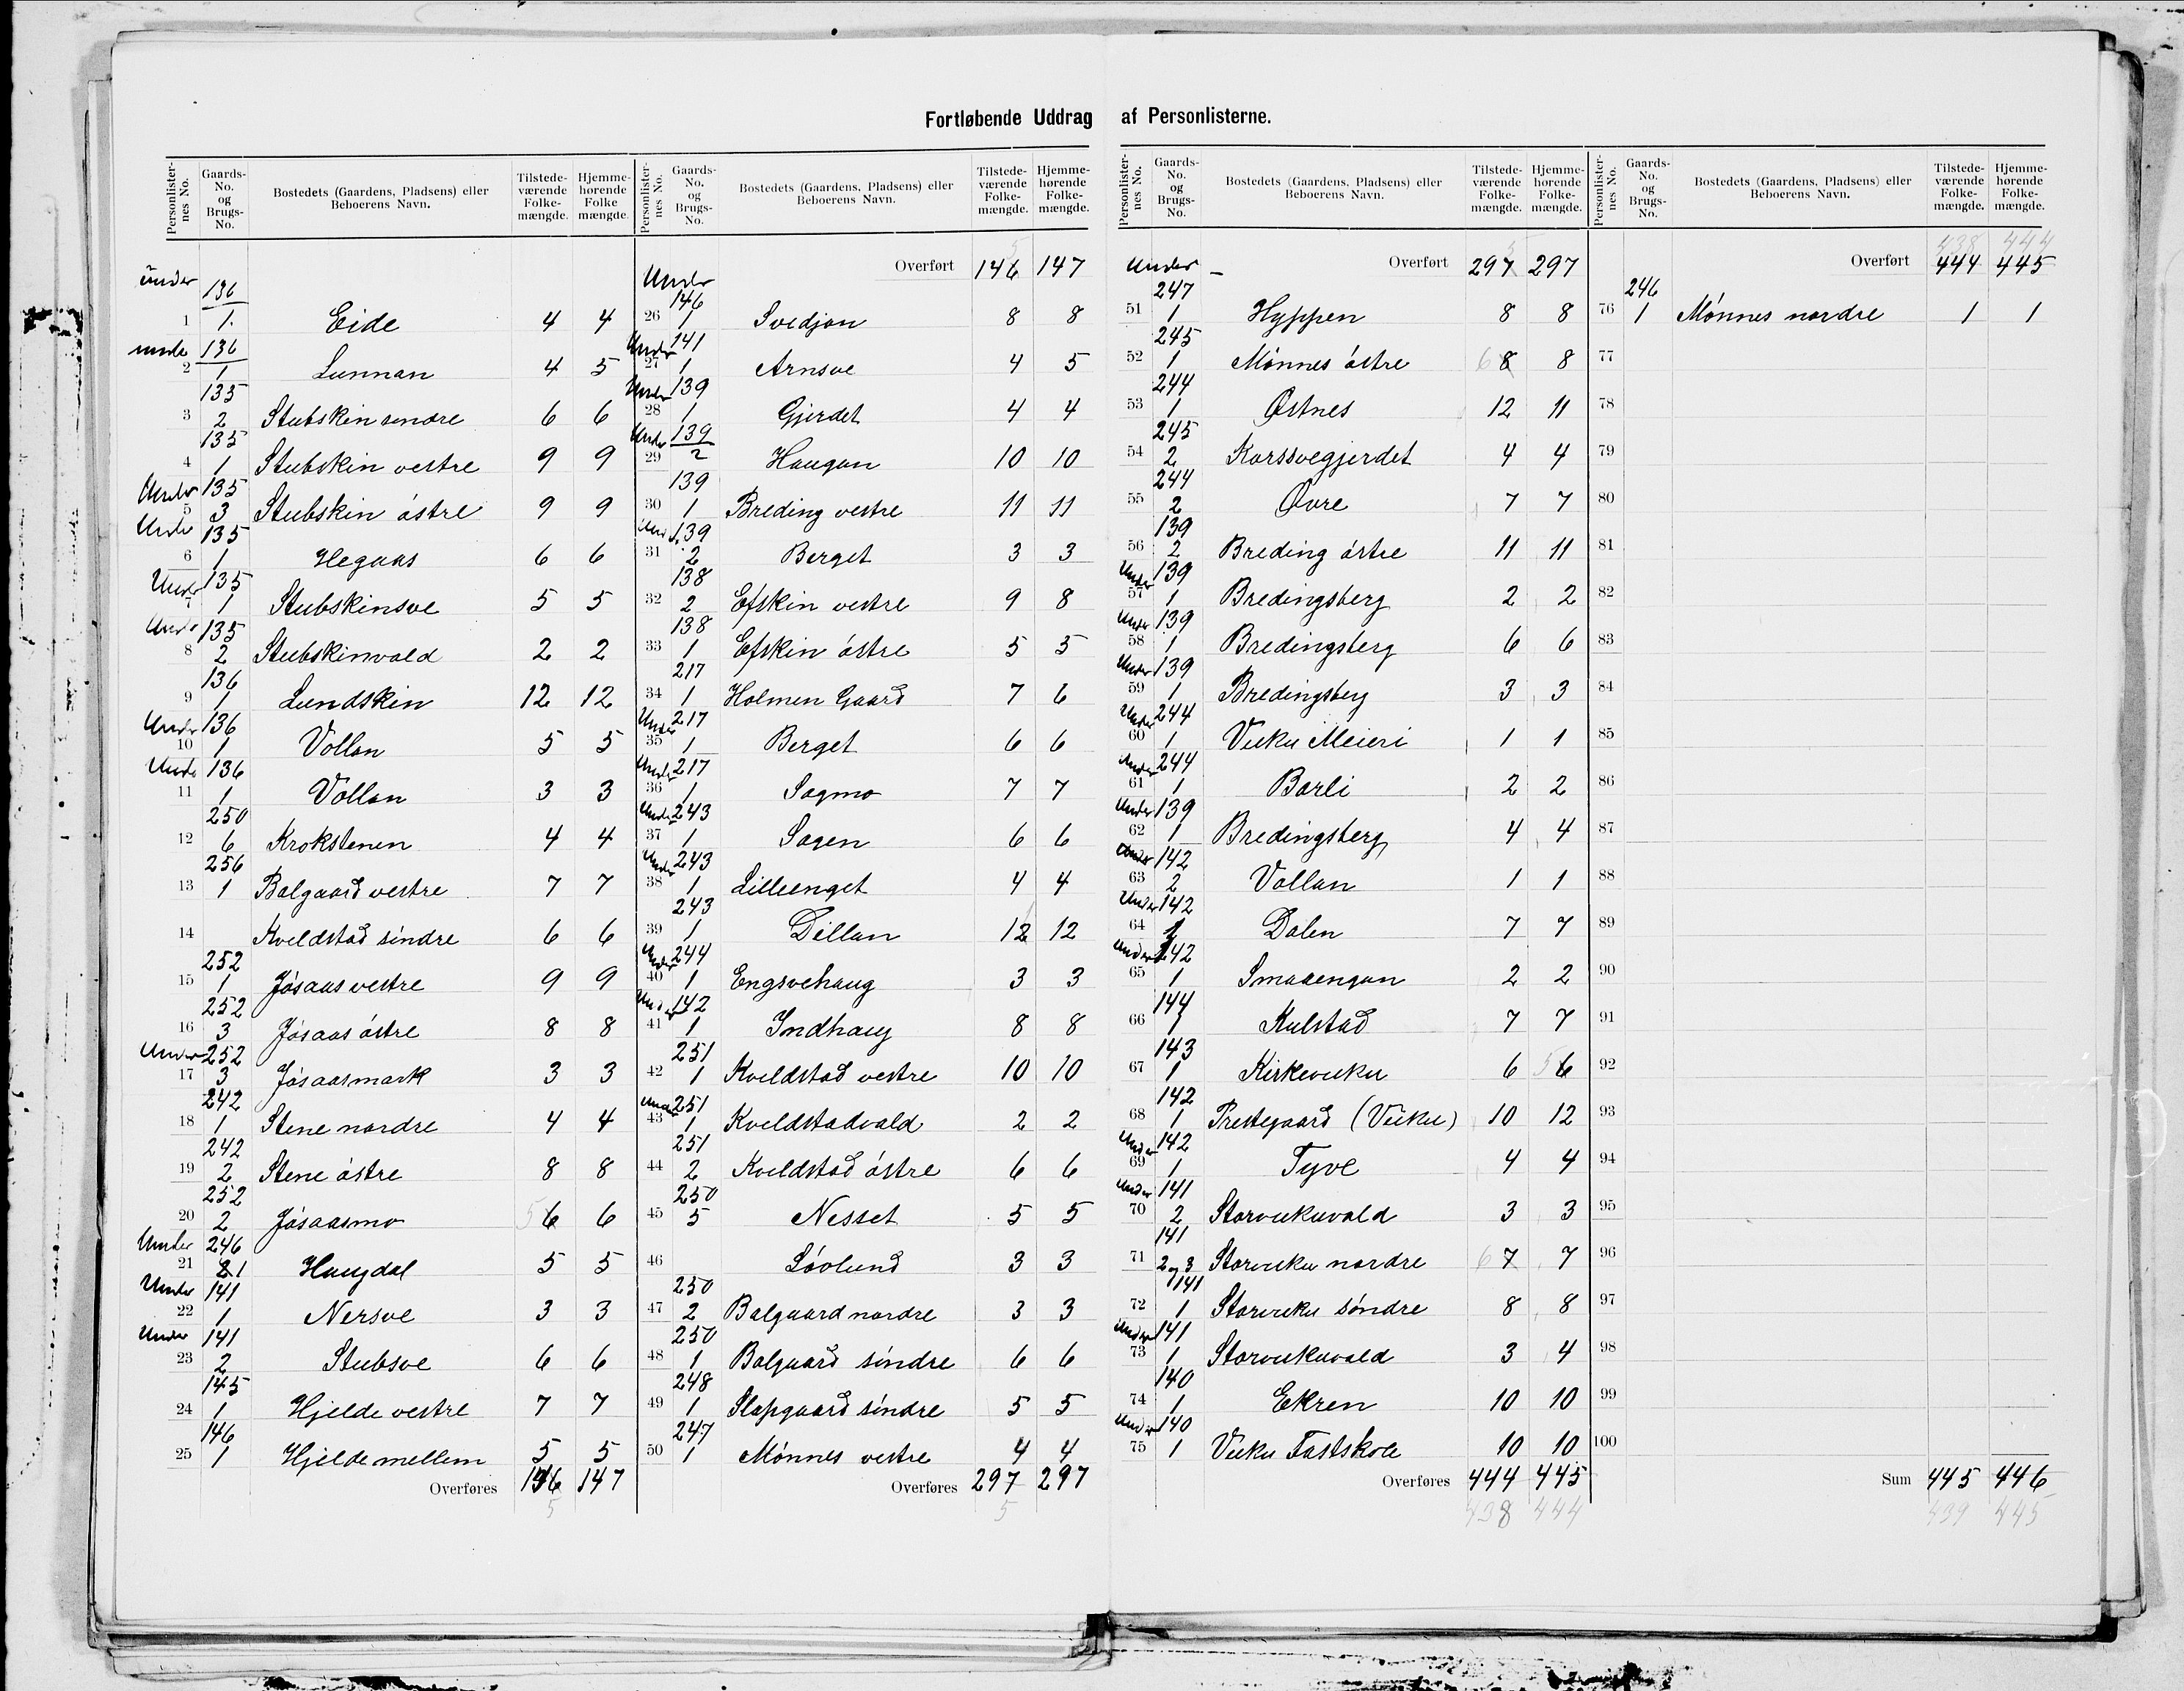 Fortløbende Uddrag af Personlisterne.
Personlister-nes No. Gaards-No. og Brugs-No. Bostedets (Gaardens, Pladsens) eller Beboerens Navn. Tilstede-værende Folke-mængde. Hjemme-hørende Folke mængde.
under 136
1 1. Eide 4 4
unde 136
2 1 Lunnan 4 5
135
3 2 Stubskin søndre 6 6
135
4 1 Stubskin vestre 9 9
Under 135
5 3 Stubskin östre 9 9
Under 135
6 1 Hegaas 6 6
Under 135
7 1 Stubskinsve 5 5
Under 135
8 2 Stubskinvald 2 2
136
9 1 Lundskin 12 12
Under 136
10 1 Vollan 5 5
Unde 136
11 1 Vollan 3 3
250
12 6 Krokstenen 4 4
256
13 1 Balgaard vestre 7 7
14 Kveldstad söndre 6 6
252
15 1 Jösaas vestre 9 9
252
16 3 Jösaas östre 8 8
Under 252
17 3 Jösaasmark 3 3
242
18 1 Stene nordre 4 4
242
19 2 Stene östre 8 8
252
20 2 Jösaasmo 5 6 6
Under 246
21 1 Haugdal 5 5
Under 141
22 1 Nersve 3 3
Under 141
23 2 Stubsve 6 6
145
24 1 Hjelde vestre 7 7
146
25 1 Hjelde mellem 5 5
Overføres 146 147
5
Personlister-nes No. Gaards-No. og Brugs-No. Bostedets (Gaardens, Pladsens) eller Beboerens Navn. Tilstede-værende Folke-mængde. Hjemme-hørende Folke-mængde.
5
Overført 146 147
Under 146
26 1 Svedjan 8 8
Under 141
27 1 Arnsve 4 5
Under 139
28 1 Gjerdet 4 4
Under 139
29 2 Haugan 10 10
139
30 1 Breding vestre 11 11
Und. 139
31 2 Berget 3 3
138
32 2 Efskin vestre 9 8
138
33 1 Efskin östre 5 5
217
34 1 Holmen Gaard 7 6
Under 217
35 1 Berget 6 6
Under 217
36 1 Sagmo 7 7
Under 243
37 1 Sagen 6 6
Under 243
38 1 Lilleenget 4 4
243
39 1 Dillan 12 12
Under 244
40 1 Engsvehaug 3 3
Under 142
41 1 Indhaug 8 8
251
42 1 Kveldstad vestre 10 10
Under 251
43 1 Kveldstadvald 2 2
251
44 2 Kveldstad östre 6 6
250
45 5 Nesset 5 5
46 Lövlund 3 3
250
47 2 Balgaard nordre 3 3
250
48 1 Balgaard söndre 6 6
248
49 1 Slapgaard söndre 5 5
247
50 1 Mönnes vestre 4 4
Overføres 297 297
5
Personlister-nes No. Gaards-No. og Brugs-No. Bostedets (Gaardens, Pladsens) eller Beboerens Navn. Tilstede-værende Folke-mængde. Hjemme-hørende Folke-mængde.
5
Under Overført 297 297
247
51 1 Hyppen 8 8
245
52 1 Mönnes östre 6 8 8
244
53 1 Østnes 12 11
245
54 2 Karssvegjerdet 4 4
244
55 2 Øvre 7 7
139
56 2 Breding östre 11 11
Under 139
57 1 Bredingsberg 2 2
Under 139
58 1 Bredingsberg 6 6
Under 139
59 1 Bredingsberg 3 3
Under 244
60 1 Vuku Meieri 1 1
Under 244
61 1 Barli 2 2
Under 139
62 1 Bredingsberg 4 4
Under 142
63 2 Vollan 1 1
Under 142
64 1 Dalen 7 7
Under 142
65 1 Smaaengan 2 2
144
66 1 Kulstad 7 7
143
67 1 Kirkevuku 6 5 6
142
68 1 Prestegaard (Vuku) 10 12
Under 142
69 1 Tyve 4 4
Under 141
70 2 Storvukuvald 3 3
141
71 2 og 3 Storvuku nordre 6 7 7
141
72 1 Storvuku söndre 8 8
Under 141
73 1 Storvukuvald 3 4
140
74 1 Ekren 10 10
Under 140
75 1 Vuku Fastskole 10 10
Overføres 444 445
438 444
Personlister-nes No. Gaards-No. og Brugs-No. Bostedets (Gaardens, Pladsens) eller Beboerens Navn. Tilstede-værende Folke-mængde. Hjemme-hørende Folke-mængde.
438 444
Overført 444 445
246
76 1 Mönnes nordre 1 1
77
78
79
80
81
82
83
84
85
86
87
88
89
90
91
92
93
94
95
96
97
98
99
100
Sum 445 446
439 445